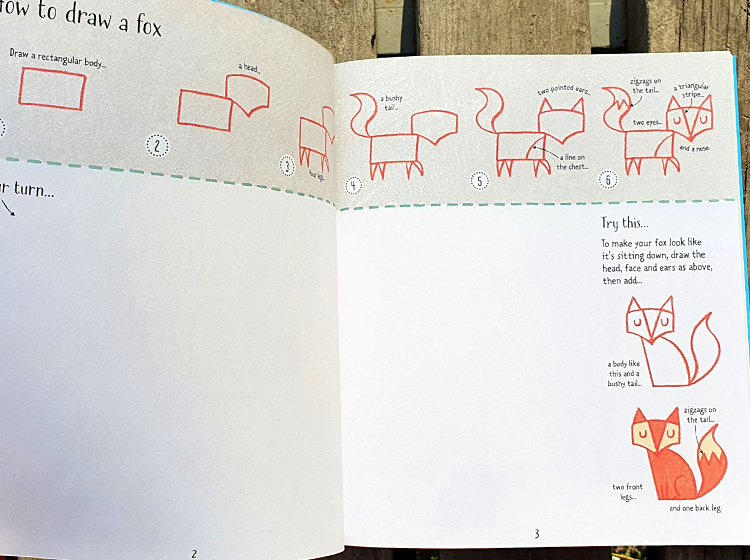 ow to draw a fox
Draw a rectangular body...
a head...
2
3
four legs...
r turn...
2
a bushy
tail...
4
two pointed ears...
a line on
the chest...
5
zigzags on
the tail...
a triangular
stripe...
two eyes...
and a nose.
6
Try this...
To make your fox look like
it's sitting down, draw the
head, face and ears as above,
then add...
a body like
this and a
bushy tail...
zigzags on
the tail...
two front
legs...
and one back leg.
3